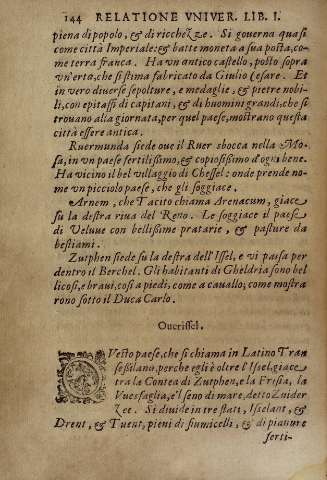 144 RELATIONE VNIVER. LIB. I.
piena di popolo, & di ricchezze. Si gouerna quasi
come città Imperiale: & batte moneta a sua posta, co-
me terra franca. Ha vn antico castello, posto sopra
vn'erta, che si stima fabricato da Giulio Cesare. Et
in vero diuerse sepolture, e medaglie, & pietre nobi-
li, con epitaffi di capitani, & di huomini grandi, che si
trouano alla giornata, per quel paese, mostrano questa
città essere antica.
Ruermunda siede oue il Ruer sbocca nella Mo-
sa, in vn paese fertilissimo, & copiosissimo d'ogni bene.
Ha vicino il bel villaggio di Chessel: onde prende no-
me vn picciolo paese, che gli soggiace.
Arnem, che Tacito chiama Arenacum, giace
su la destra riua del Reno. Le soggiace il paese
di Veluue con bellissime pratarie, & pasture da
bestiami.
Zutphen siede su la destra dell'Issel, e vi passa per
dentro il Berchel. Gli habitanti di Gheldria sono bel
licosi, e braui, così a piedi, come a cauallo; come mostra
rono sotto il Duca Carlo.
Ouerissel.
QVesto paese, che si chiama in Latino Tran
seßilano, perche egli è oltre l'Issel, giace
tra la Contea di Zutphen, e la Frisia, la
Vuesfaglia, e'l seno di mare, detto Zuider
Zee. Si diuide in tre stati, Isselant, &
Drent, & Tuent, pieni di fiumicelli, & di pianure
ferti-